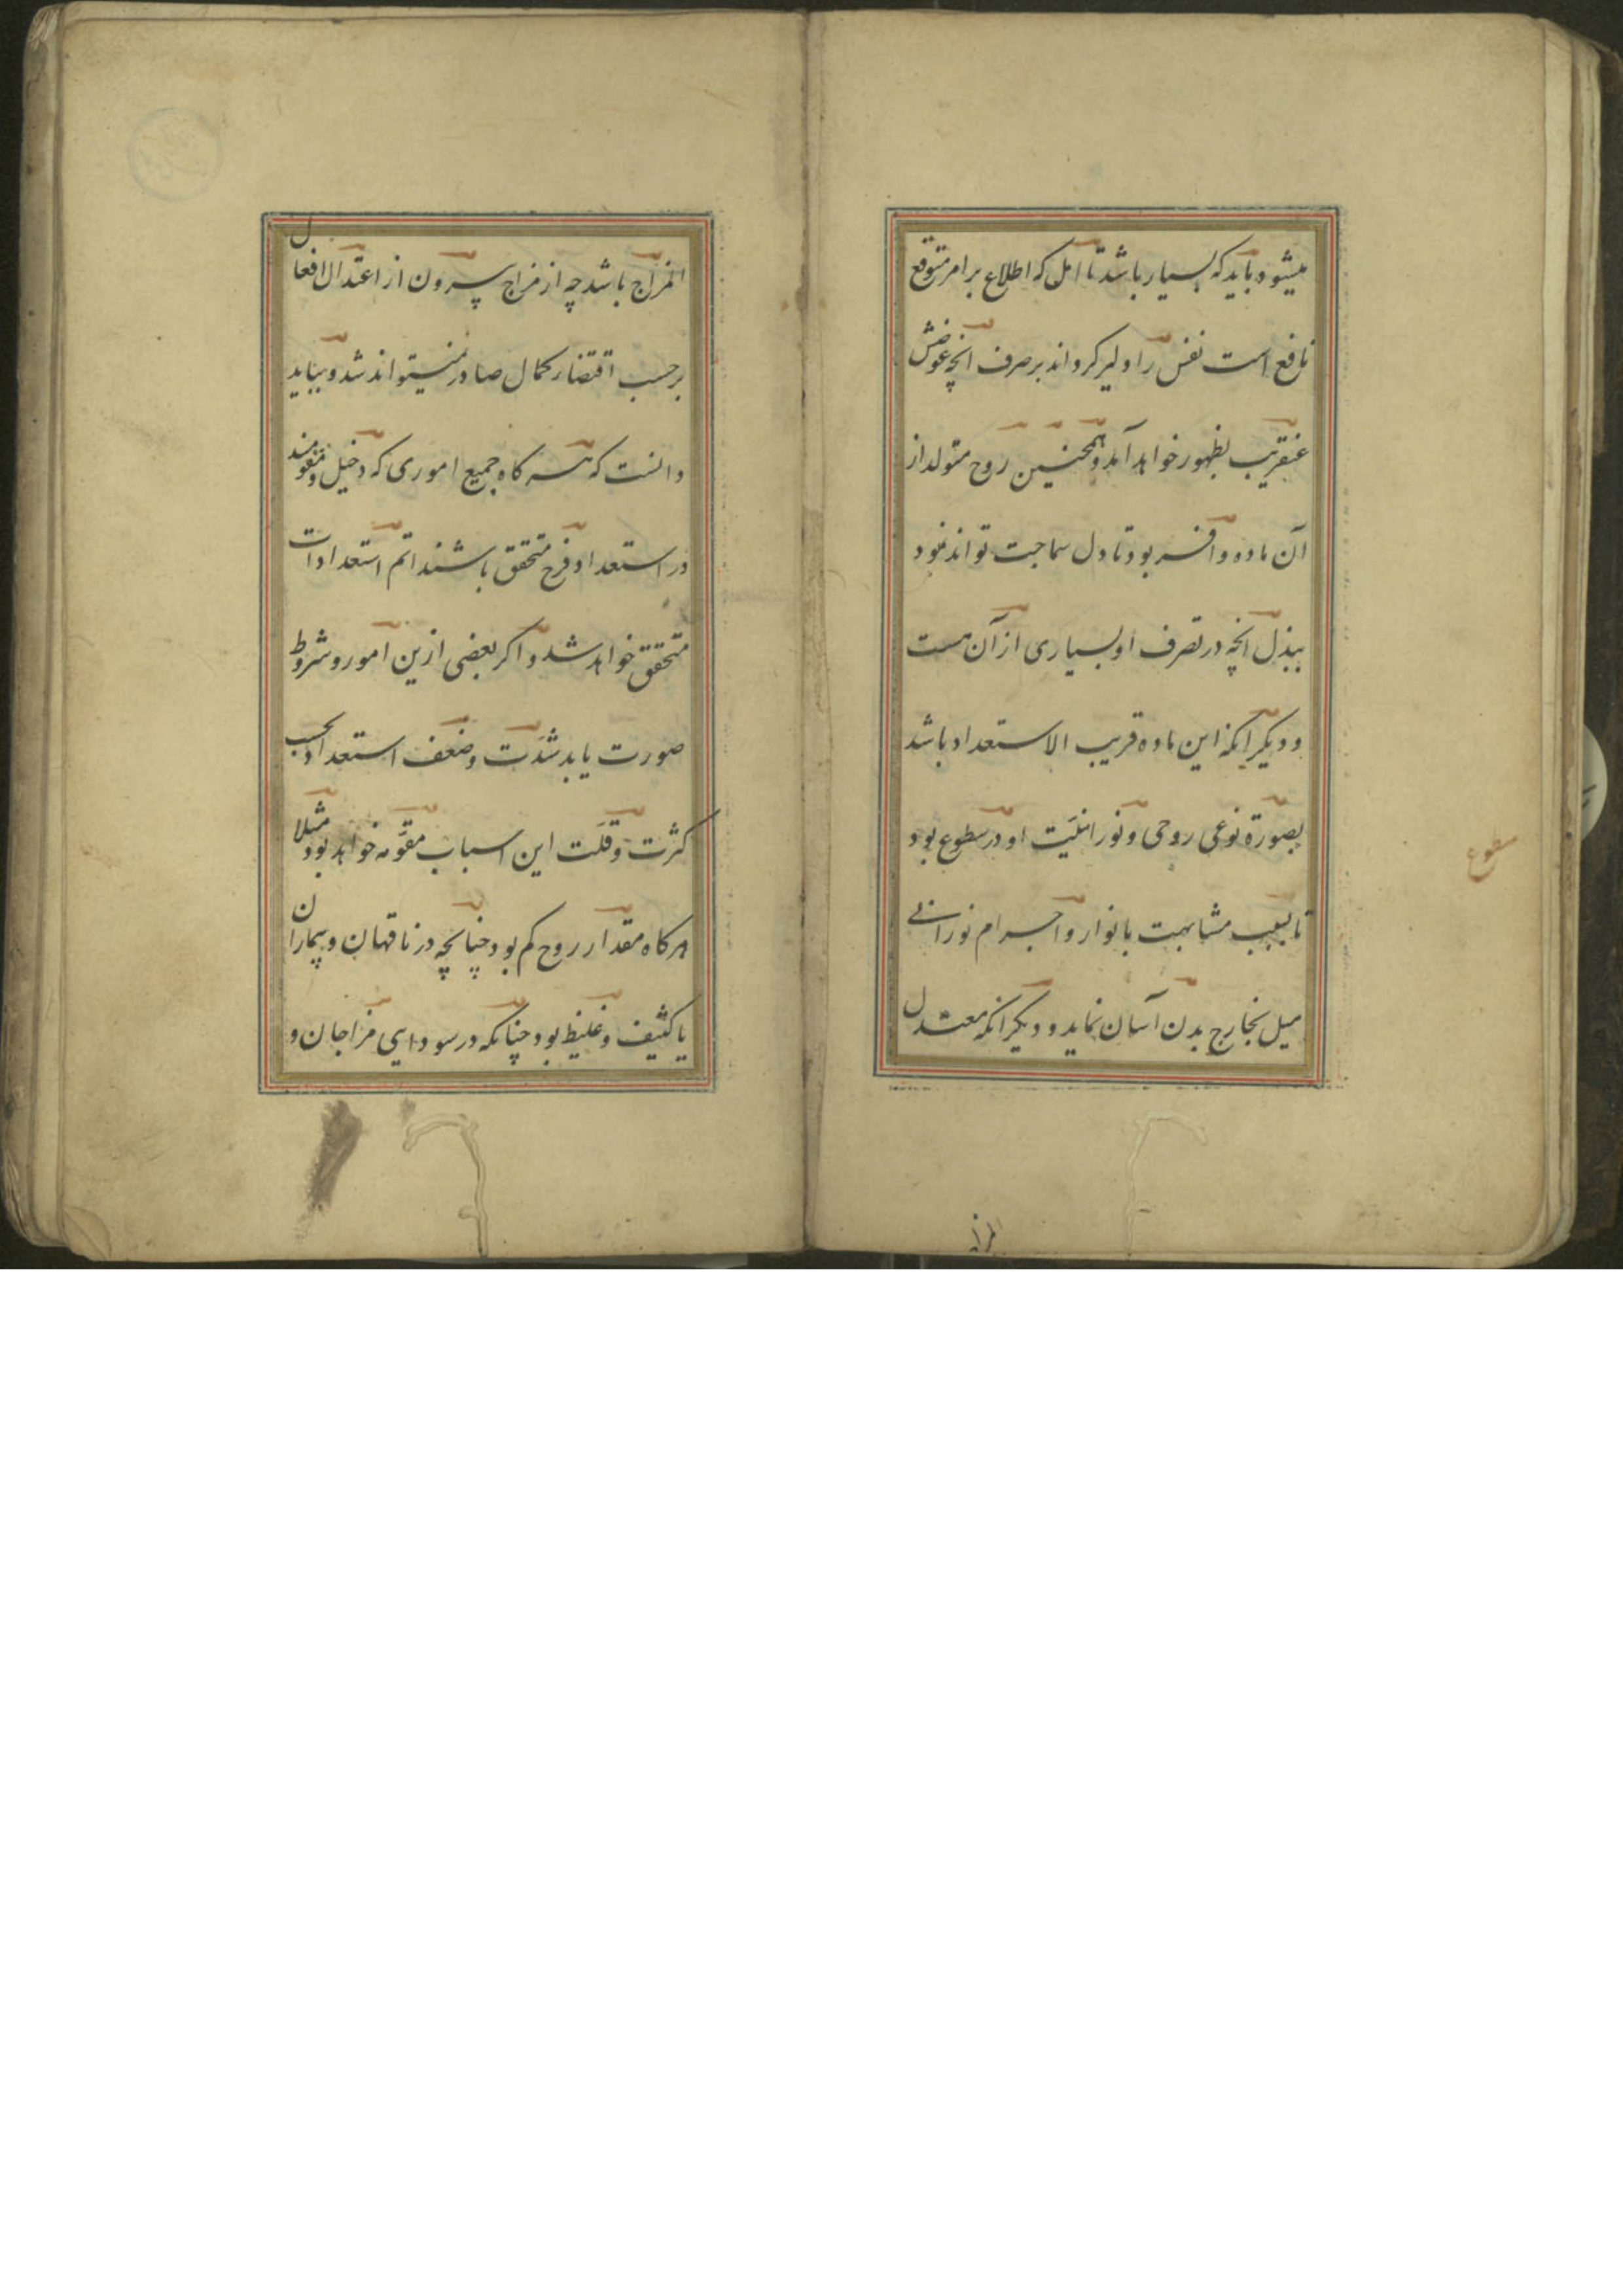 میشود باید که بسیار باشد تا امل که اطلاع بر امر متوقع
نافع است نفس را دلیر کرداند بر صرف انچه عوضش
عنقریب بظهور خواهد آمد و همچنین روح متولد از
آن ماده وافر بود تا دل سماجت تواند نمود
ببذل انچه در تصرف او بسیاری از آن هست
و دیگر آنکه این ماده قریب الاستعداد باشد
بصورة نوعی روحی و نورانیّت او در سطوع بود
تا بسبب مشابهت بانوار و اجرام نورانی
میل بخارج بدن آسان نماید و دیگر آنکه معتدل
سطوع
المزاج
المزاج باشد چه از مزاج بیرون از اعتدال افعال
بر حسب اقتضار کمال صادر نمیتواند شد و بباید
دانست که هر کاه جمیع اموری که دخیل و مقومند
در استعداد فرح متحقق باشند اتم استعدادات
متحقق خواهد شد و اکر بعضی ازین امور و شروط
صورت یابد شدّت و ضعف استعداد بحسب
کثرت و قلّت این اسباب مقوّمه خواهد بود مثلا
هر کاه مقدار روح کم بود چنانچه در ناقهان و بیماران
یا کثیف و غلیظ بود چنانکه در سودایی مزاجان و